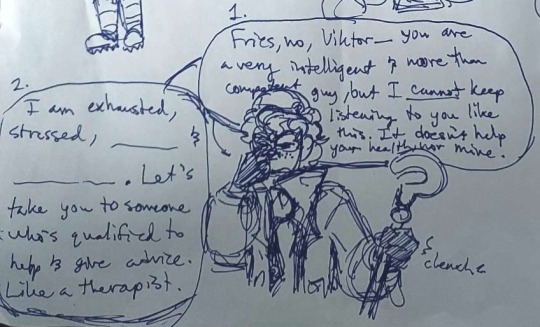 1.
Fries, no, Viktor— you are
a very intelligent & more than
competent guy, but I cannot keep
listening to you like
this. It doesn't help
your health nor mine.
2.
I am exhausted,
stressed, ______ &
__________. Let's
take you to someone
who's qualified to
help & give advice.
Like a therapist.
clench